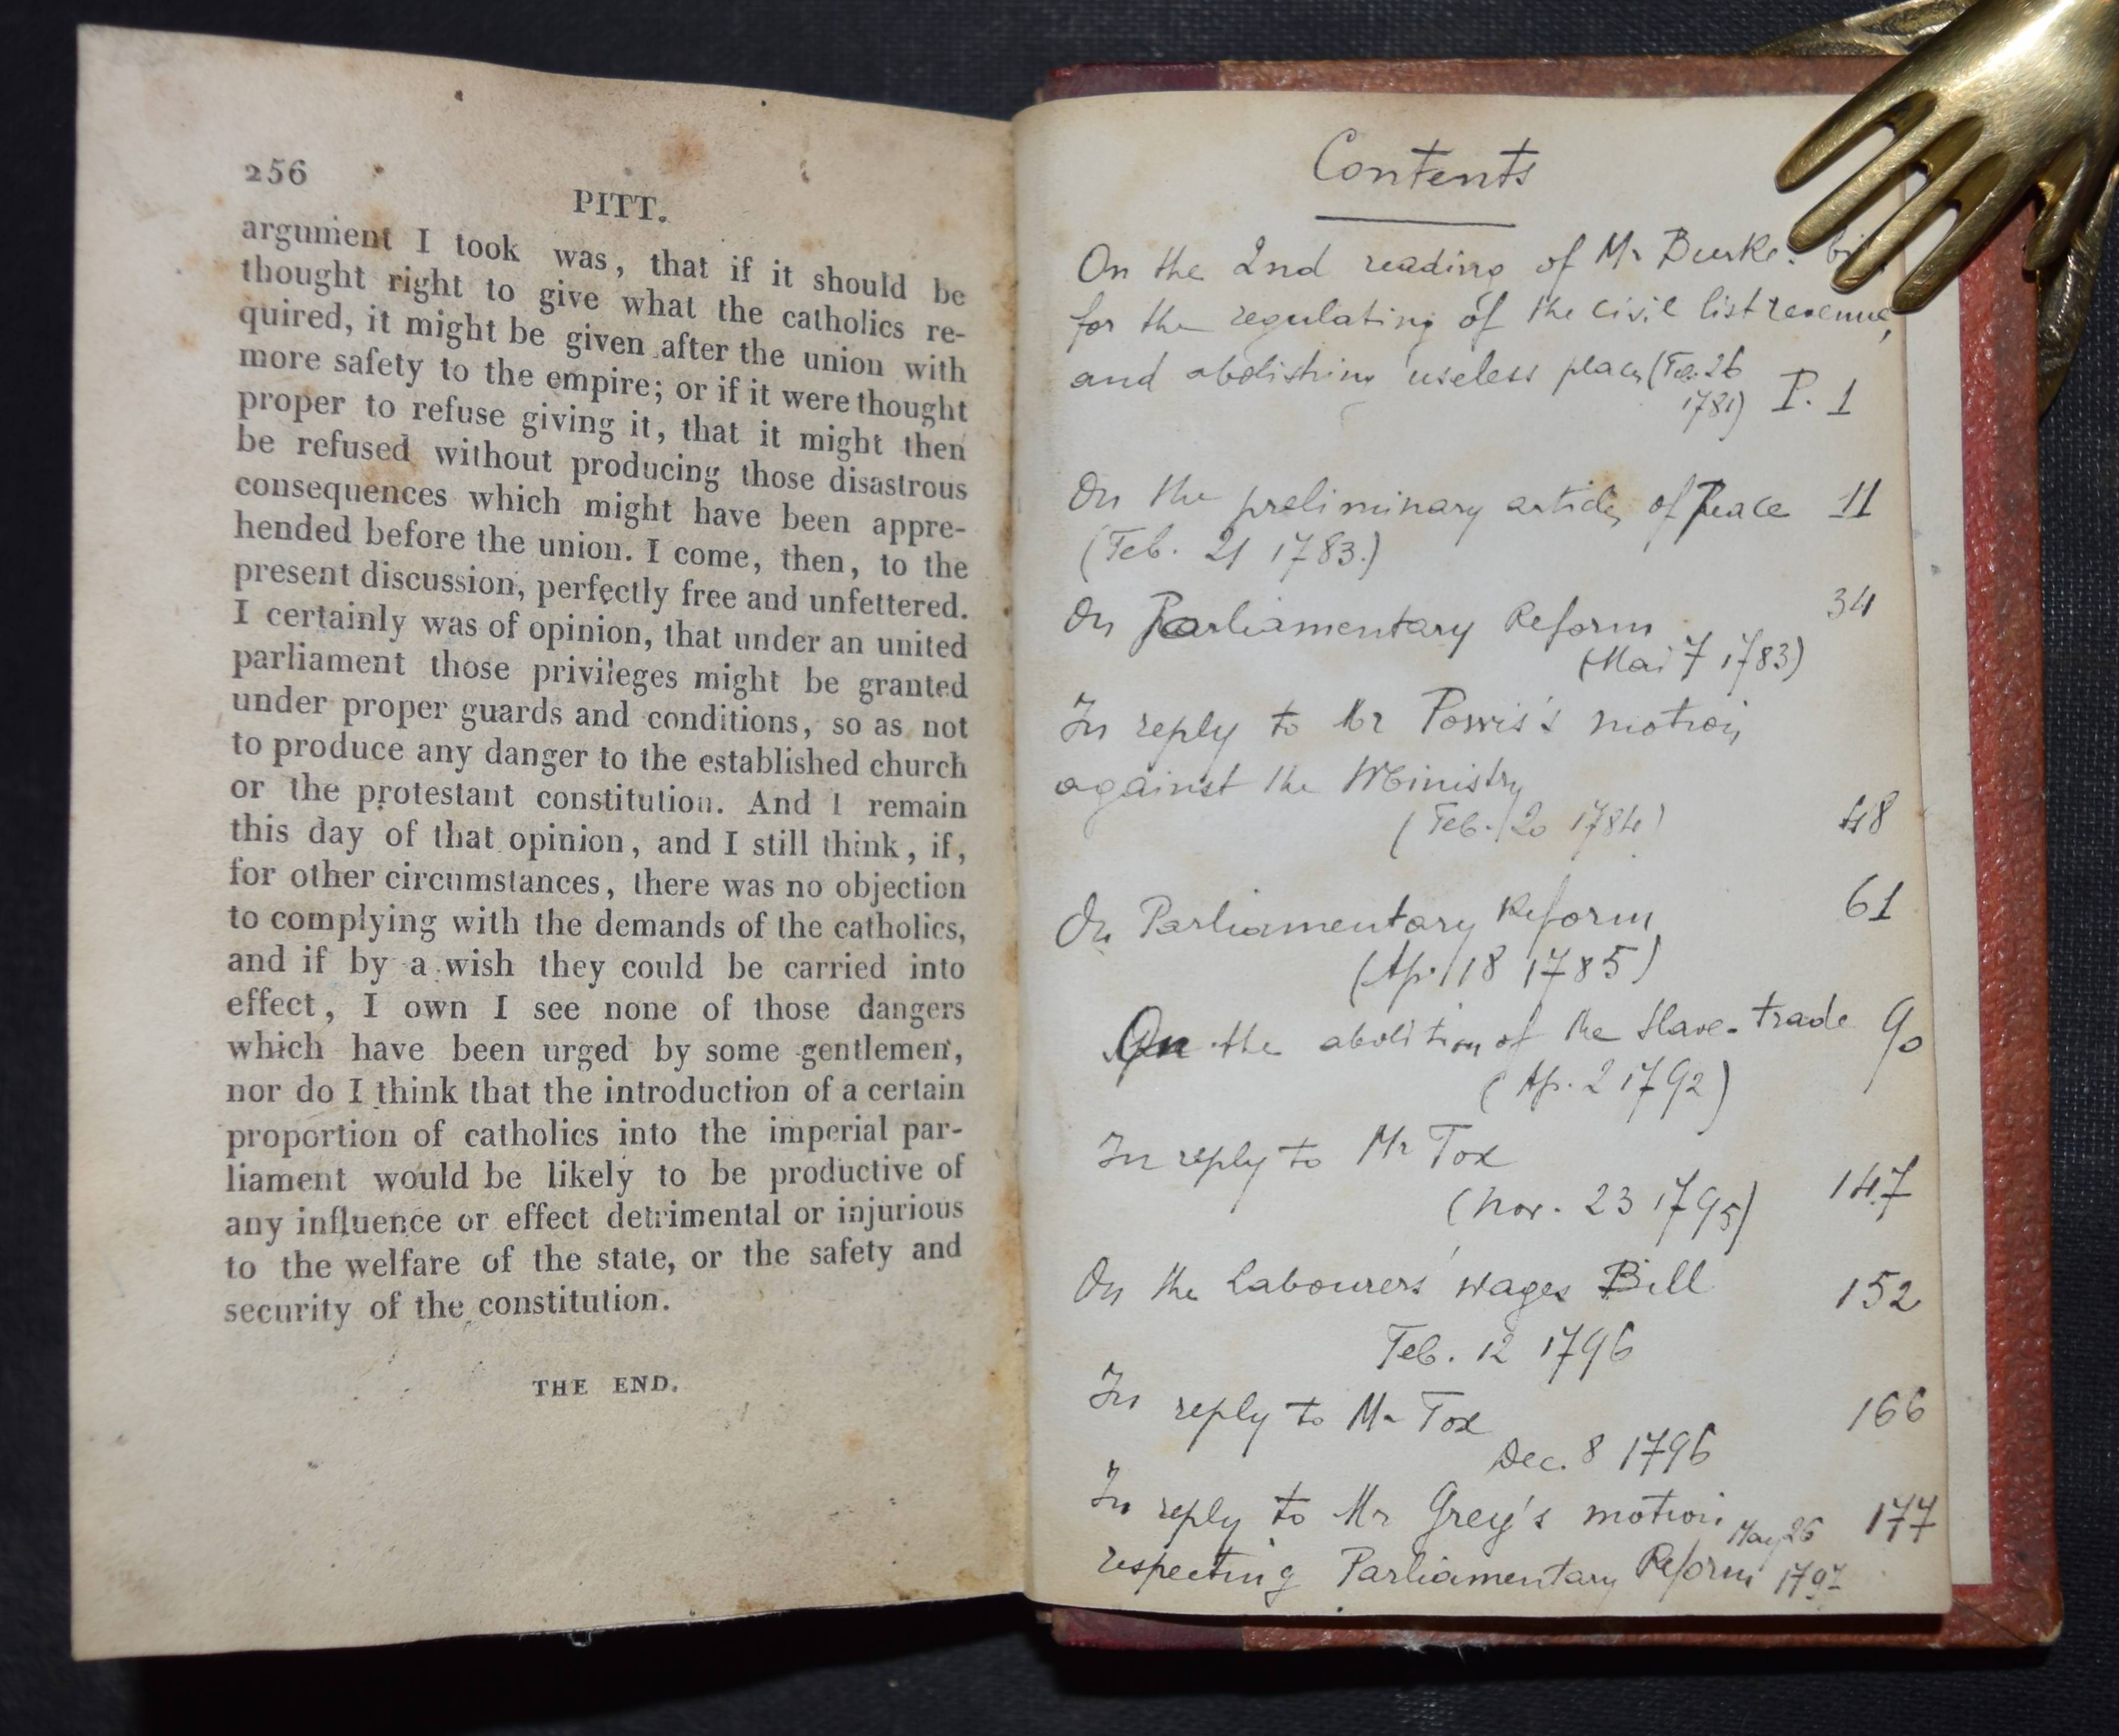 256
PITT.
argument I took was, that if it should be
thought right to give what the catholics re-
quired, it might be given after the union with
more safety to the empire; or if it were thought
proper to refuse giving it, that it might then
be refused without producing those disastrous
consequences which might have been appre-
hended before the union. I come, then, to the
present discussion, perfectly free and unfettered.
I certainly was of opinion, that under an united
parliament those privileges might be granted
under proper guards and conditions, so as not
to produce any danger to the established church
or the protestant constitution. And I remain
this day of that opinion, and I still think, if,
for other circumstances, there was no objection
to complying with the demands of the catholics,
and if by a wish they could be carried into
effect, I own I see none of those dangers
which have been urged by some gentlemen,
nor do I think that the introduction of a certain
proportion of catholics into the imperial par-
liament would be likely to be productive of
any influence or effect detrimental or injurious
to the welfare of the state, or the safety and
security of the constitution.
THE END.
Contents
On the 2nd reading of Mr Burke's
for the regulating of the civil list revenue,
and abolishing useless places (Feb. 26
1781) P. 1
On the preliminary articles of Peace 11
(Feb. 21 1783.)
On Parliamentary Reform 34
(Mai 7 1783)
In reply to Mr Powis's motion
against the Ministry
(Feb. 20 1784) 48
On Parliamentary Reform 61
(Ap. 18 1785)
On the abolition of the Slave-trade 90
(Ap. 2 1792)
In reply to Mr Fox
(Nov. 23 1795) 147
On the Labourers' wages Bill 152
Feb. 12 1796
In reply to Mr Fox 166
Dec. 8 1796
In reply to Mr Grey's motion May 26 177
respecting Parliamentary Reform 1797